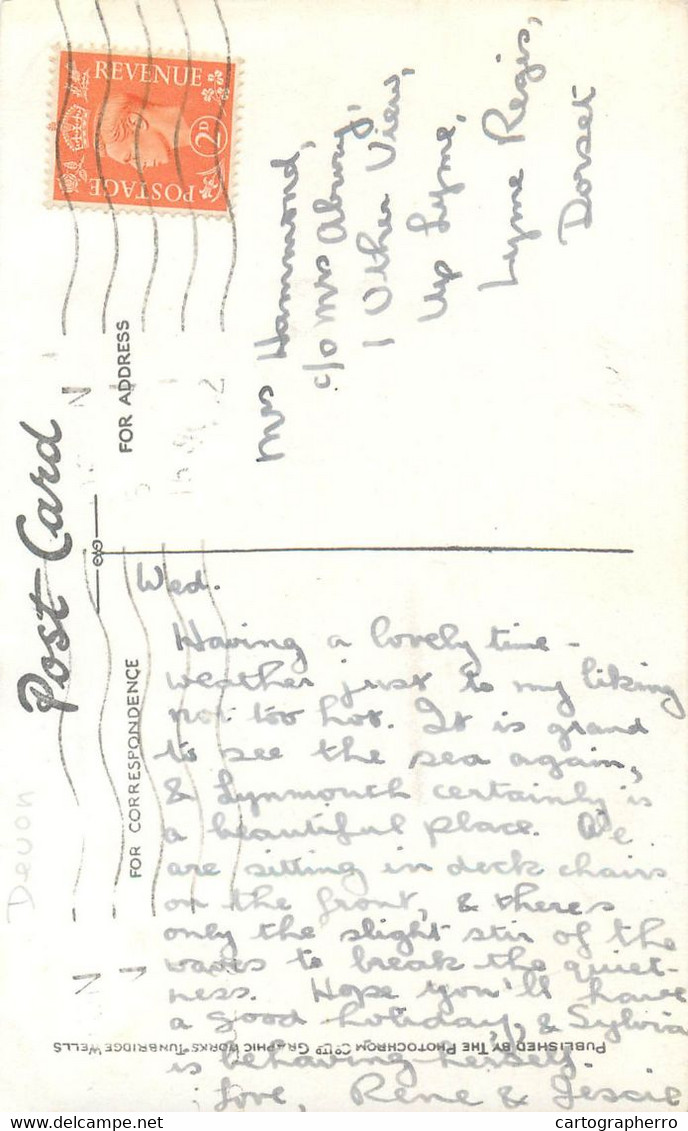 Post Card
FOR CORRESPONDENCE
FOR ADDRESS
REVENUE
2D
POSTAGE
Mrs Hammond,
c/o Mrs
1 View,
Up Lyme,
Lyme Regis,
Dorset
Wed.
Having a lovely time -
weather just to my liking
not too hot. It is grand
to see the sea again,
& Lynmouth certainly is
a beautiful place. We
are sitting in deck chairs
on the front, & theres
only the slight stir of the
waves to break the quiet-
ness. Hope you'll have
a good holiday, & Sylvia
is behaving herself.
Love, Rene & Jessie
Devon
PUBLISHED BY THE PHOTOCHROM CO. LTD GRAPHIC WORKS TUNBRIDGE WELLS
cartographerro